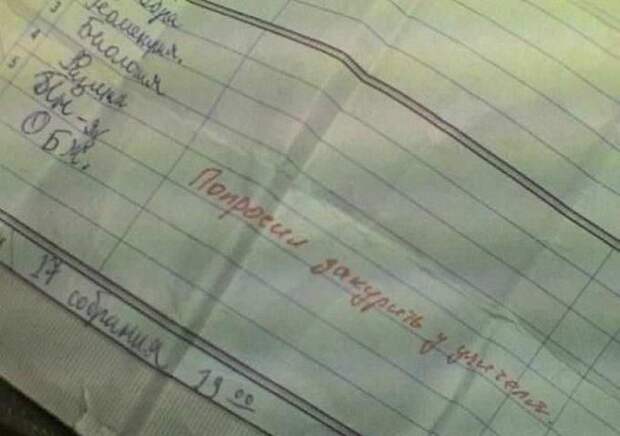 3 Геометрия.
4 Биология
5 Физика
Ин-яз
ОБЖ.
Попросил закурить у учителя
17 собрания 19 00